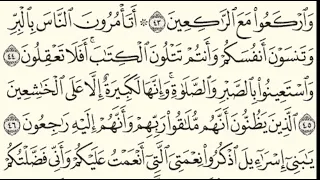 وَٱرۡكَعُواْ مَعَ ٱلرَّٰكِعِينَ ٤٣ ۞ أَتَأۡمُرُونَ ٱلنَّاسَ بِٱلۡبِرِّ
وَتَنسَوۡنَ أَنفُسَكُمۡ وَأَنتُمۡ تَتۡلُونَ ٱلۡكِتَٰبَۚ أَفَلَا تَعۡقِلُونَ ٤٤
وَٱسۡتَعِينُواْ بِٱلصَّبۡرِ وَٱلصَّلَوٰةِۚ وَإِنَّهَا لَكَبِيرَةٌ إِلَّا عَلَى ٱلۡخَٰشِعِينَ
٤٥ ٱلَّذِينَ يَظُنُّونَ أَنَّهُم مُّلَٰقُواْ رَبِّهِمۡ وَأَنَّهُمۡ إِلَيۡهِ رَٰجِعُونَ ٤٦
يَٰبَنِيٓ إِسۡرَٰٓءِيلَ ٱذۡكُرُواْ نِعۡمَتِيَ ٱلَّتِيٓ أَنۡعَمۡتُ عَلَيۡكُمۡ وَأَنِّي فَضَّلۡتُكُمۡ